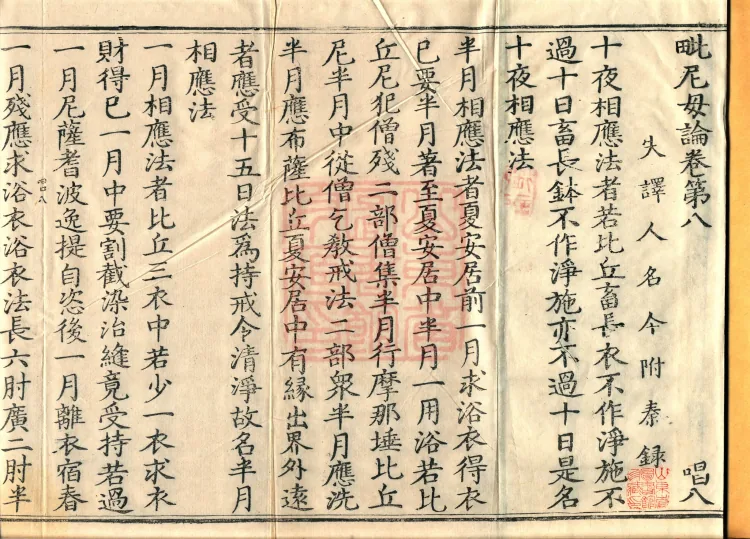 毗尼毋論卷第八 唱八
失譯人名今附秦録
十夜相應法者若比丘畜長衣不作淨施不
過十日畜長鉢不作淨施亦不過十日是名
十夜相應法
半月相應法者夏安居前一月求浴衣得衣
已要半月著至夏安居中半月一用浴若比
丘尼犯僧殘二部僧集半月行摩那埵比丘
尼半月中從僧乞教戒法二部衆半月應洗
半月應布薩比丘夏安居中有縁出界外遠
者應受十五日法爲持戒令清淨故名半月
相應法
一月相應法者比丘三衣中若少一衣求衣
財得已一月中要割截染治縫竟受持若過
一月尼薩耆波逸提自恣後一月離衣宿春
一月殘應求浴衣浴衣法長六肘廣二肘半